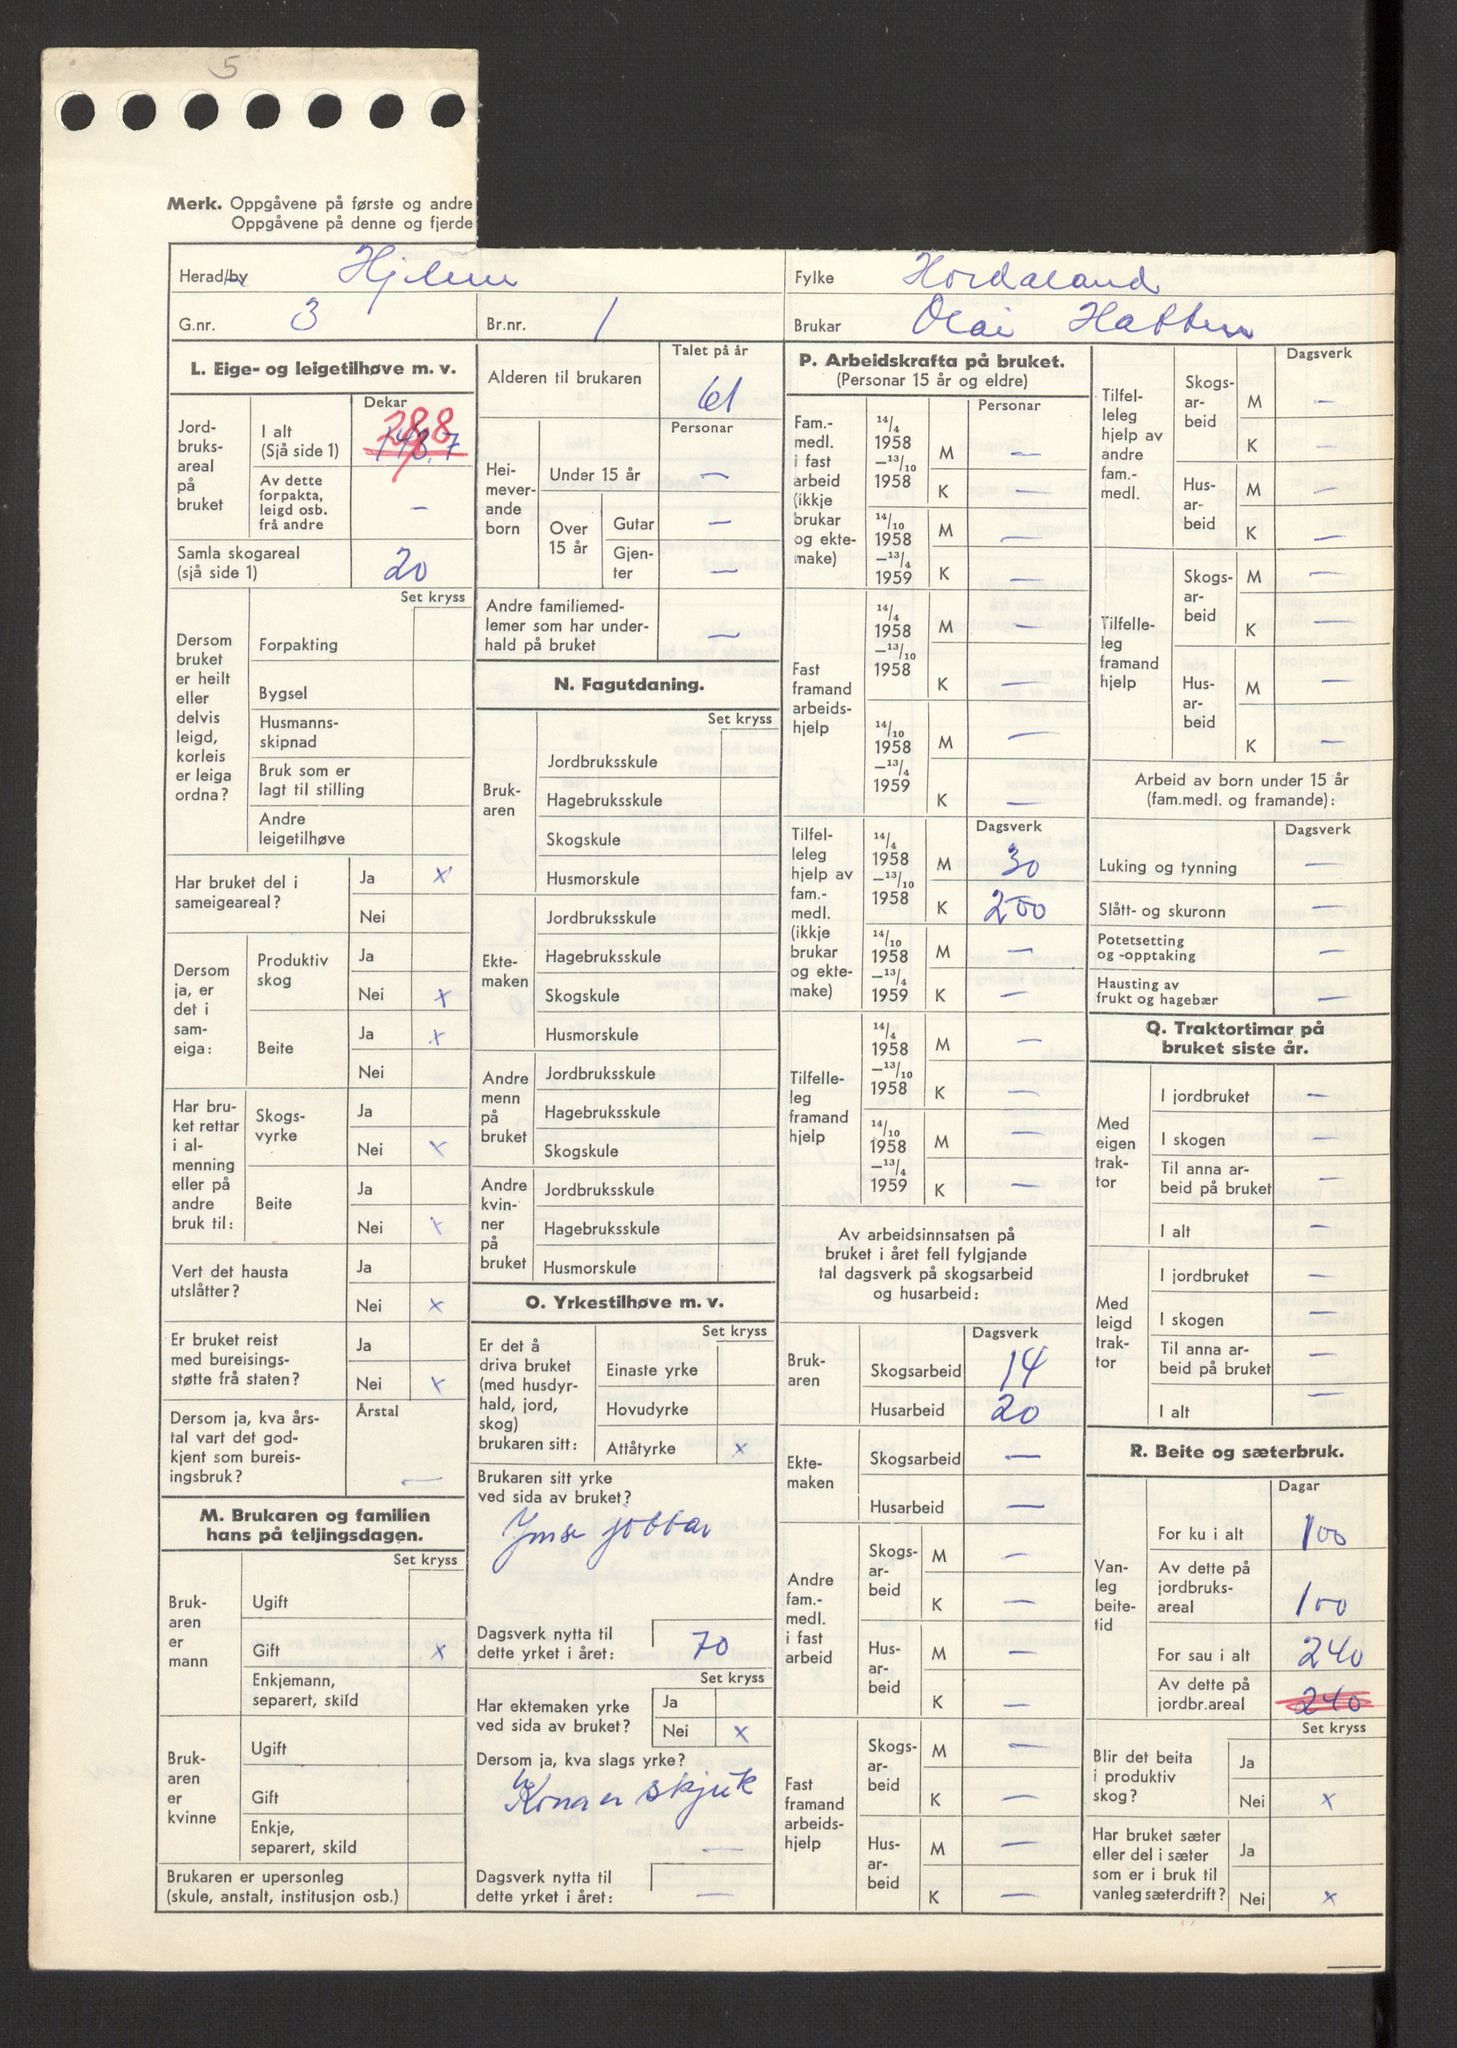 5
Merk. Oppgåvene på første og andre
Oppgåvene på denne og fjerde
Herad/by Hjelme
Fylke Hordaland
G.nr. 3 Br.nr. 1
Brukar Olai Hatten
L. Eige- og leigetilhøve m. v.
Dekar
Jord-
bruks-
areal
på
bruket
I alt
(Sjå side 1)
Av dette
forpakta,
leigd osb.
frå andre –
Samla skogareal
(sjå side 1) 20
Set kryss
Dersom
bruket
er heilt
eller
delvis
leigd,
korleis
er leiga
ordna?
Forpakting
Bygsel
Husmanns-
skipnad
Bruk som er
lagt til stilling
Andre
leigetilhøve
Har bruket del i
sameigeareal?
Ja x
Nei
Dersom
ja, er
det i
sam-
eiga:
Produktiv
skog
Ja
Nei x
Beite
Ja x
Nei
Har bru-
ket rettar
i al-
menning
eller på
andre
bruk til:
Skogs-
vyrke
Ja
Nei x
Beite
Ja
Nei x
Vert det hausta
utslåtter?
Ja
Nei x
Er bruket reist
med bureisings-
støtte frå staten?
Ja
Nei x
Dersom ja, kva års-
tal vart det god-
kjent som bureis-
ingsbruk?
Årstal
–
M. Brukaren og familien
hans på teljingsdagen.
Set kryss
Bruk-
aren
er
mann
Ugift
Gift x
Enkjemann,
separert, skild
Bruk-
aren
er
kvinne
Ugift
Gift
Enkje,
separert, skild
Brukaren er upersonleg
(skule, anstalt, institusjon osb.)
Talet på år
Alderen til brukaren 61
Personar
Hei-
mever-
ande
born
Under 15 år –
Over
15 år
Gutar –
Gjen-
ter –
Andre familiemed-
lemer som har under-
hald på bruket –
N. Fagutdaning.
Set kryss
Bruk-
aren
Jordbruksskule
Hagebruksskule
Skogskule
Husmorskule
Ekte-
maken
Jordbruksskule
Hagebruksskule
Skogskule
Husmorskule
Andre
menn
på
bruket
Jordbruksskule
Hagebruksskule
Skogskule
Andre
kvin-
ner
på
bruket
Jordbruksskule
Hagebruksskule
Husmorskule
O. Yrkestilhøve m. v.
Set kryss
Er det å
driva bruket
(med husdyr-
hald, jord,
skog)
brukaren sitt:
Einaste yrke
Hovudyrke
Attåtyrke x
Brukaren sitt yrke
ved sida av bruket?
Ymse jobbar
Dagsverk nytta til
dette yrket i året: 70
Set kryss
Har ektemaken yrke
ved sida av bruket?
Ja
Nei x
Dersom ja, kva slags yrke?
Kona er skjuk
Dagsverk nytta til
dette yrket i året: –
P. Arbeidskrafta på bruket.
(Personar 15 år og eldre)
Personar
Fam.-
medl.
i fast
arbeid
(ikkje
brukar
og ekte-
make)
14/4
1958
–13/10
1958
M –
K –
14/10
1958
–13/4
1959
M –
K –
Fast
framand
arbeids-
hjelp
14/4
1958
–13/10
1958
M –
K –
14/10
1958
–13/4
1959
M –
K –
Dagsverk
Tilfel-
leleg
hjelp av
fam.-
medl.
(ikkje
brukar
og ekte-
make)
14/4
1958
–13/10
1958
M 30
K 200
14/10
1958
–13/4
1959
M –
K –
Tilfelle-
leg
framand
hjelp
14/4
1958
–13/10
1958
M –
K –
14/10
1958
–13/4
1959
M –
K –
Av arbeidsinnsatsen på
bruket i året fell fylgjande
tal dagsverk på skogsarbeid
og husarbeid:
Dagsverk
Bruk-
aren
Skogsarbeid 14
Husarbeid 20
Ekte-
maken
Skogsarbeid –
Husarbeid –
Andre
fam.-
medl.
i fast
arbeid
Skogs-
ar-
beid
M –
K –
Hus-
ar-
beid
M –
K –
Fast
framand
arbeids-
hjelp
Skogs-
ar-
beid
M –
K –
Hus-
ar-
beid
M –
K –
Dagsverk
Tilfel-
leleg
hjelp av
andre
fam.-
medl.
Skogs-
ar-
beid
M –
K –
Hus-
ar-
beid
M –
K –
Tilfelle-
leg
framand
hjelp
Skogs-
ar-
beid
M –
K –
Hus-
ar-
beid
M –
K –
Arbeid av born under 15 år
(fam.medl. og framande):
Dagsverk
Luking og tynning –
Slått- og skuronn –
Potetsetting
og -opptaking –
Hausting av
frukt og hagebær –
Q. Traktortimar på
bruket siste år.
Med
eigen
trak-
tor
I jordbruket –
I skogen –
Til anna ar-
beid på bruket –
I alt –
Med
leigd
trak-
tor
I jordbruket –
I skogen –
Til anna ar-
beid på bruket –
I alt –
R. Beite og sæterbruk.
Dagar
Van-
leg
beite-
tid
For ku i alt 100
Av dette på
jordbruks-
areal 100
For sau i alt 240
Av dette på
jordbr.areal 240
Set kryss
Blir det beita
i produktiv
skog?
Ja
Nei x
Har bruket sæter
eller del i sæter
som er i bruk til
vanleg sæterdrift?
Ja
Nei x